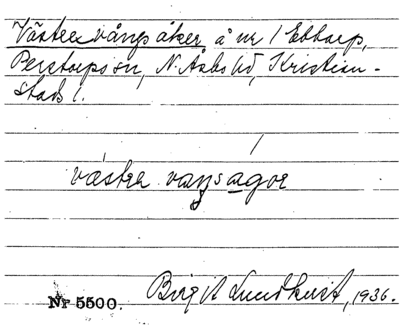 Västra vångs åker å nr 1 Ebbarp,
Perstorps sn, N. Åsbo hd, Kristian-
stads l.
västra vaŋsagor
Nr 5500. Birgit Lundkvist, 1936.